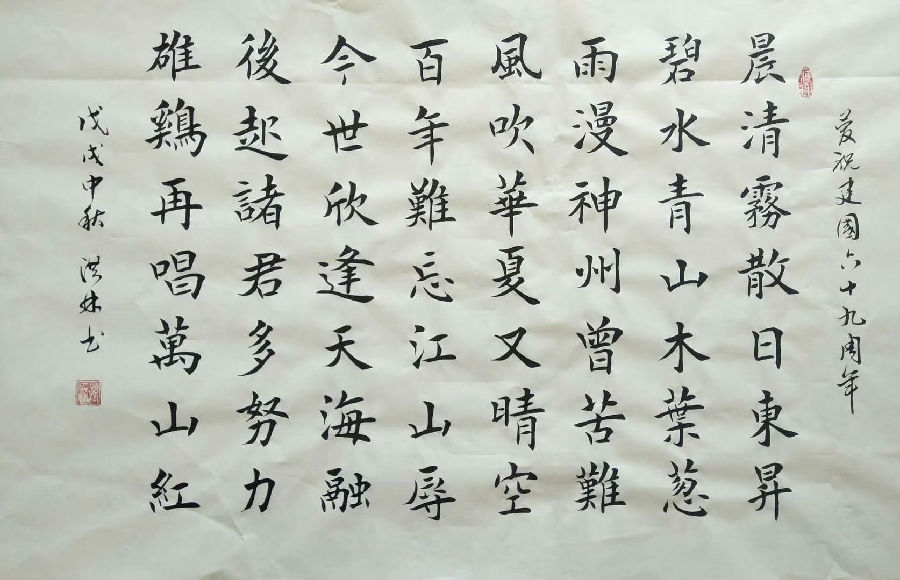 慶祝建國六十九周年
晨清霧散日東昇
碧水青山木葉蔥
雨漫神州曾苦難
風吹華夏又晴空
百年難忘江山辱
今世欣逢天海融
後起諸君多努力
雄鷄再唱萬山紅
戊戌中秋 洪林书